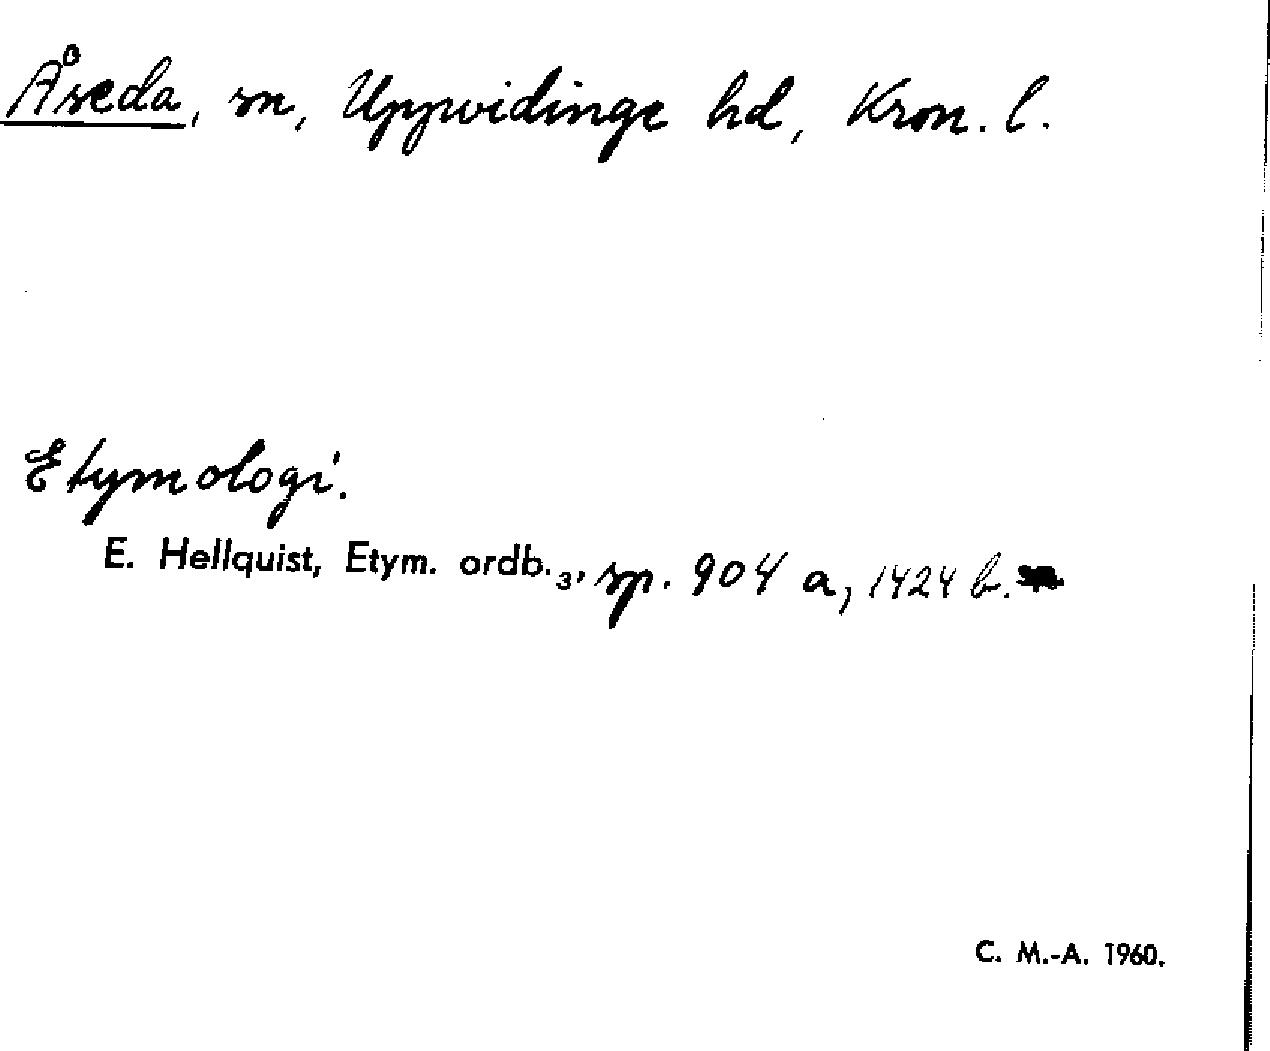 Åseda, sn, Uppvidinge hd, Kron. l.
Etymologi.
E. Hellquist, Etym. ordb.₃, sp. 904 a, 1424 b.
C. M.-A. 1960.